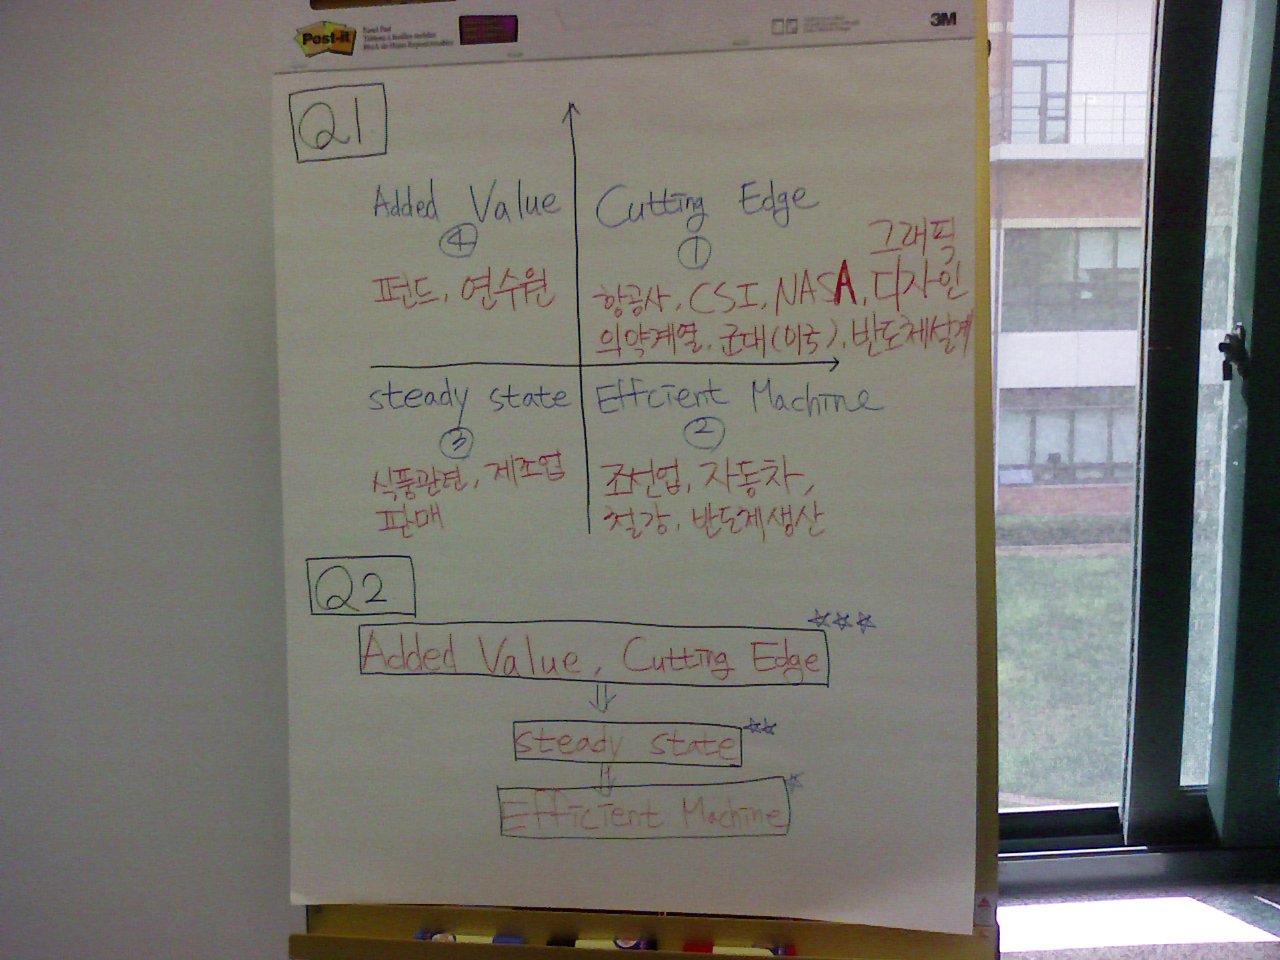 Post-it
3M
Q1
Added Value
④
펀드, 연수원
Cutting Edge
①
그래픽
항공사, CSI, NASA, 디자인
의약계열, 군대(미국), 반도체설계
steady state
③
식품관련, 제조업
판매
Effcient Machine
②
조선업, 자동차,
철강, 반도체생산
Q2
Added Value, Cutting Edge ☆☆☆
⇓
steady state ☆☆
⇓
Efficient Machine ☆